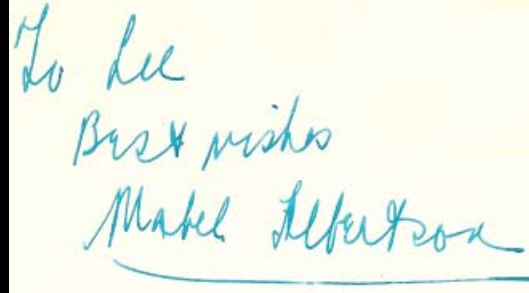 To Lee
Best wishes
Mabel Albertson